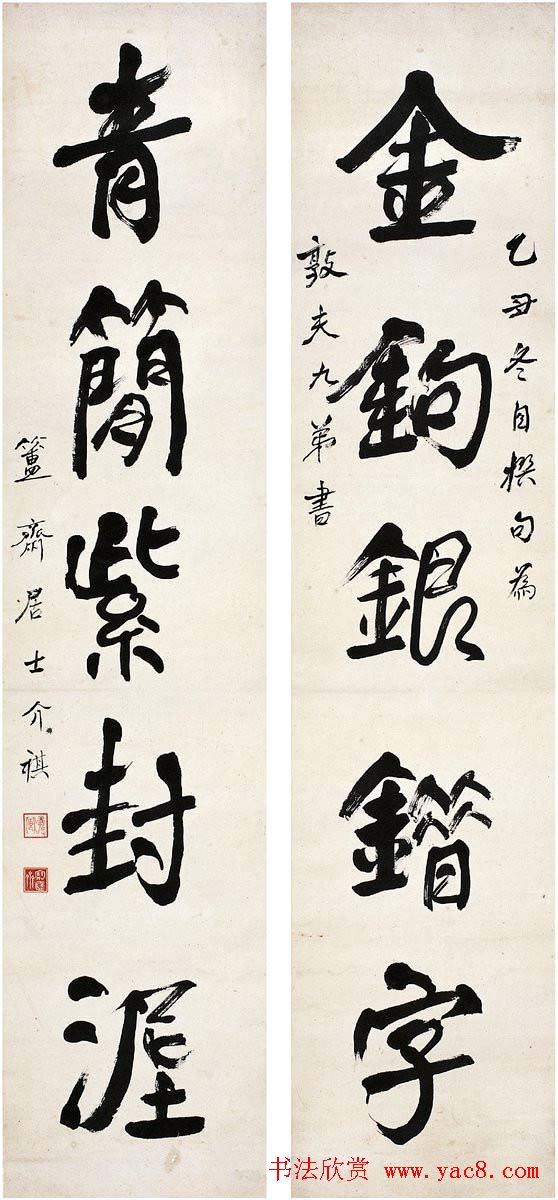 乙丑冬自撰句為
金鉤銀錯字
敦夫九弟書
青簡紫封埿
簠齋居士介祺
书法欣赏 www.yac8.com